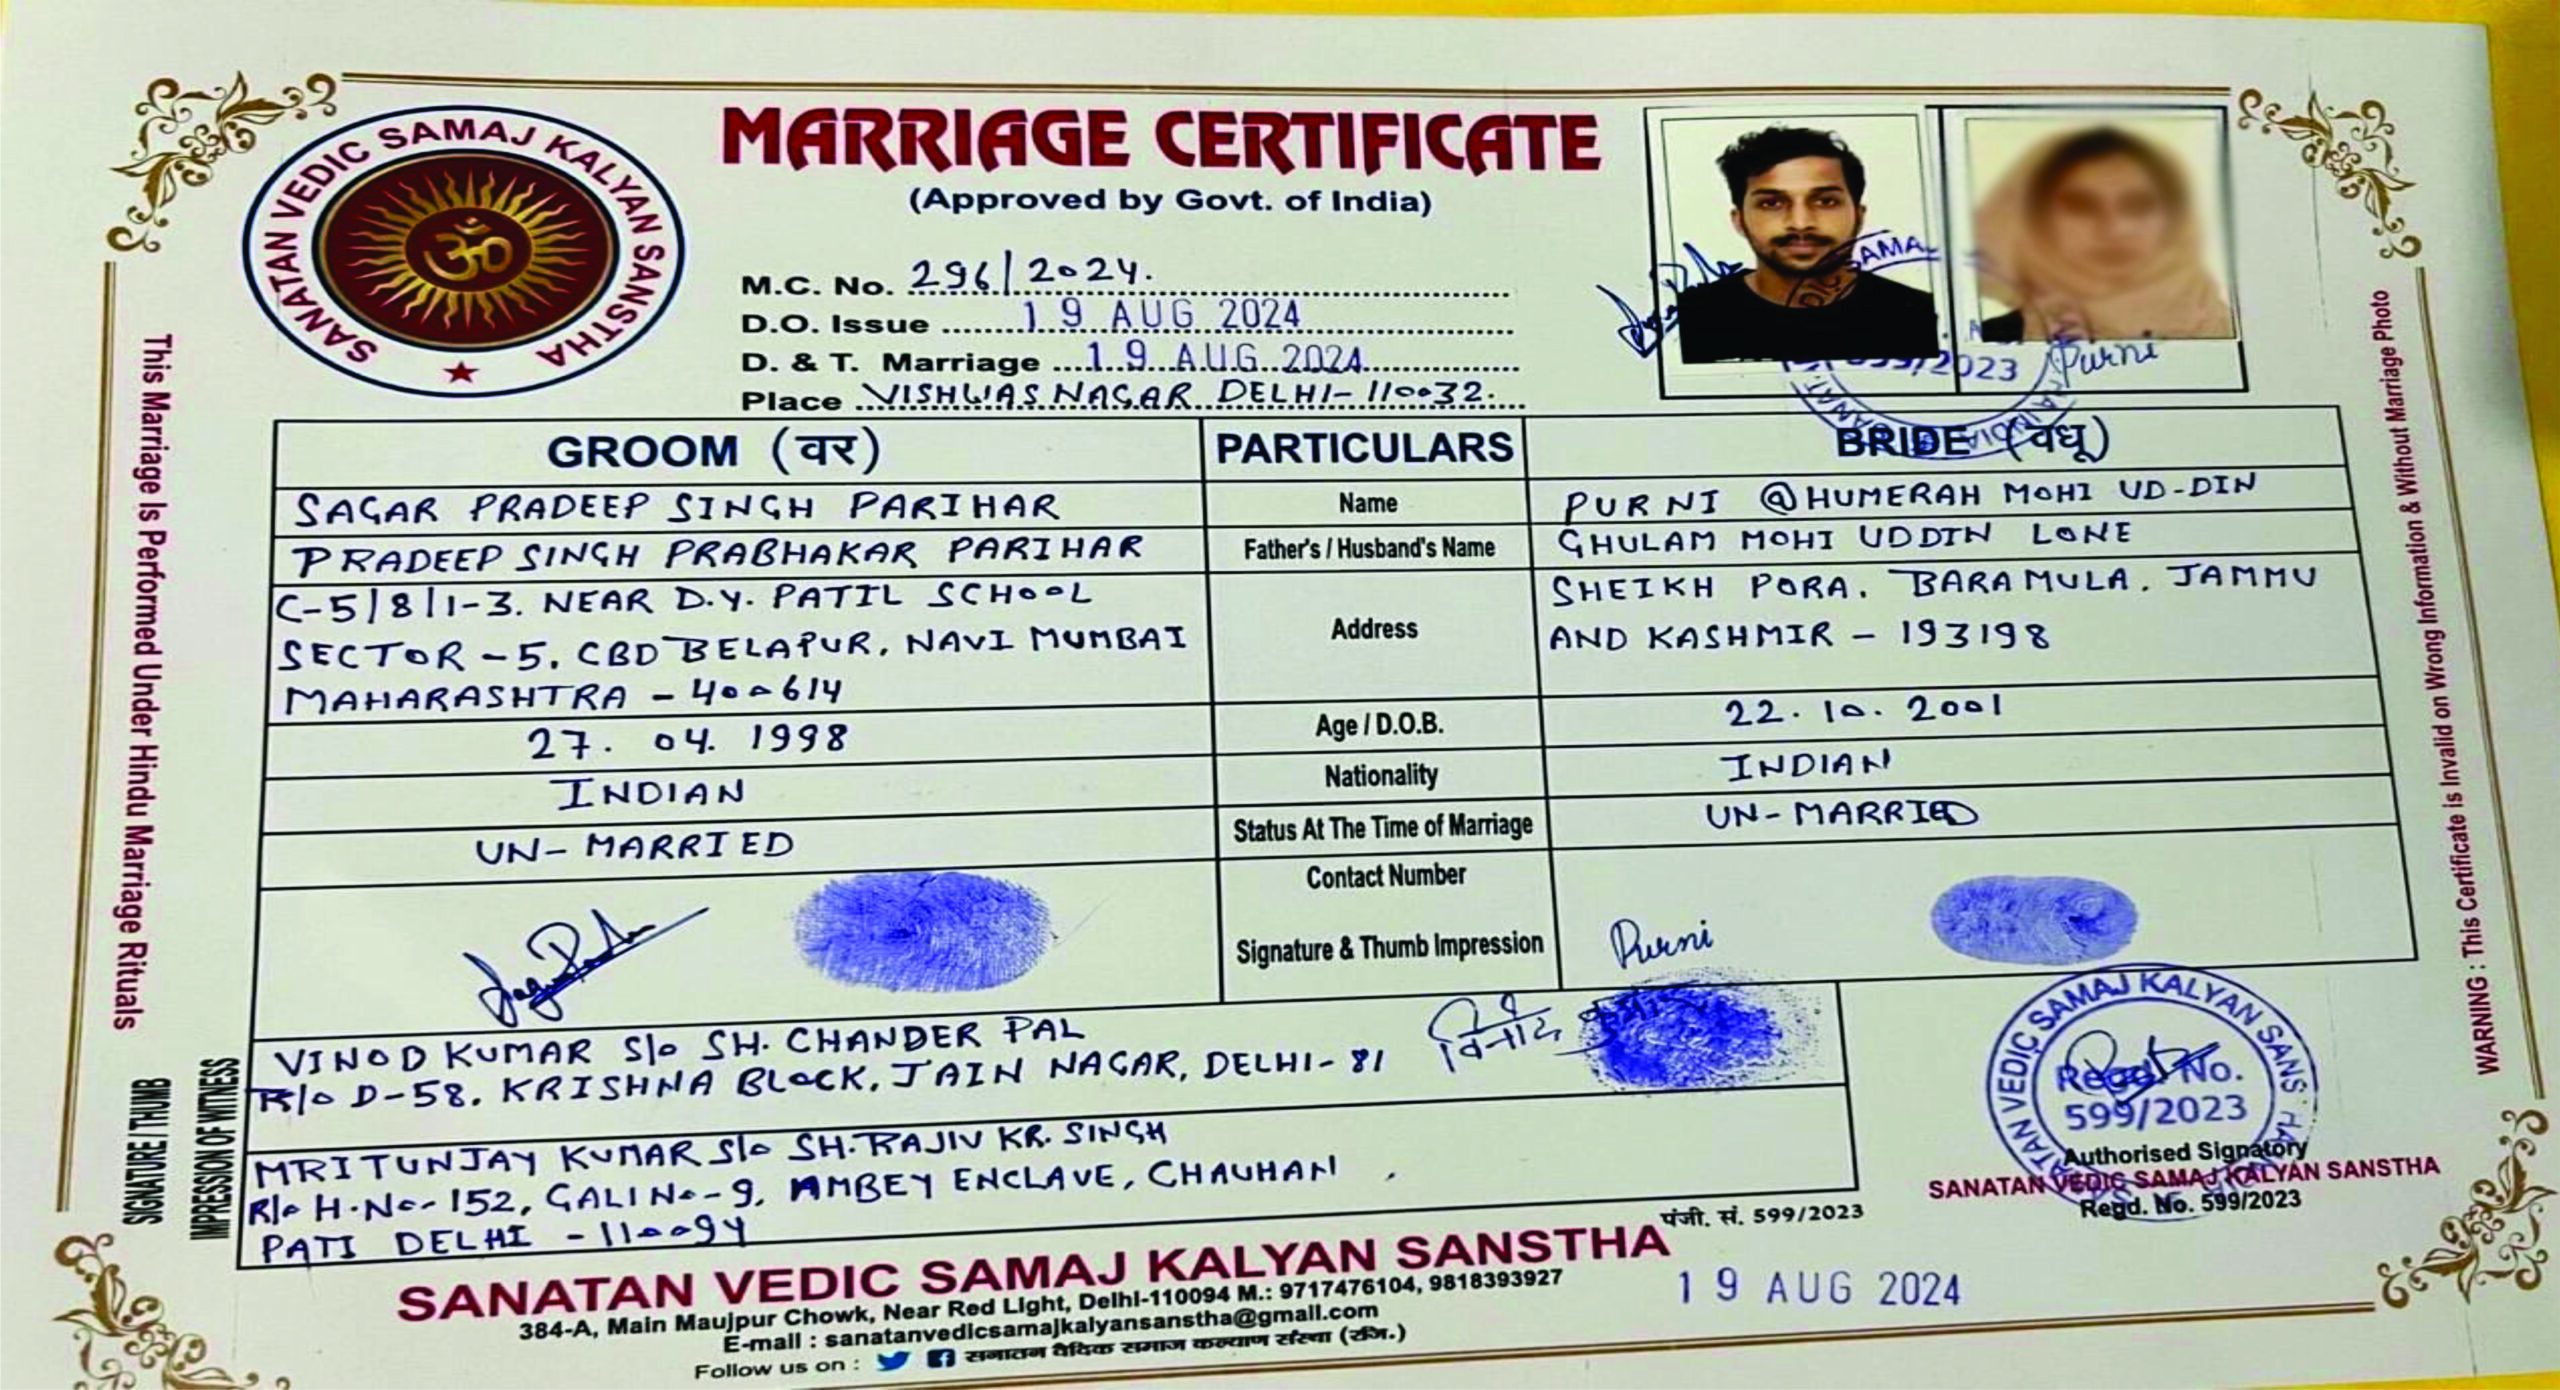 SANATAN VEDIC SAMAJ KALYAN SANSTHA
ॐ
MARRIAGE CERTIFICATE
(Approved by Govt. of India)
M.C. No. 296/2024.
D.O. Issue 19 AUG 2024
D. & T. Marriage 19 AUG 2024
Place VISHWAS NAGAR DELHI-110032.
Purni
This Marriage Is Performed Under Hindu Marriage Rituals
WARNING : This Certificate is Invalid on Wrong Information & Without Marriage Photo
GROOM (वर) PARTICULARS BRIDE (वधू)
SAGAR PRADEEP SINGH PARIHAR Name PURNI @HUMERAH MOHI UD-DIN
PRADEEP SINGH PRABHAKAR PARIHAR Father's / Husband's Name GHULAM MOHI UDDIN LONE
C-5/8/1-3. NEAR D.Y. PATIL SCHOOL
SECTOR-5, CBD BELAPUR, NAVI MUMBAI
MAHARASHTRA - 400614
Address
SHEIKH PORA, BARAMULA, JAMMU
AND KASHMIR - 193198
27. 04. 1998 Age / D.O.B. 22. 10. 2001
INDIAN Nationality INDIAN
UN-MARRIED Status At The Time of Marriage UN-MARRIED
Contact Number
Signature & Thumb Impression
Purni
SIGNATURE / THUMB
IMPRESSION OF WITNESS
VINOD KUMAR S/o SH. CHANDER PAL
R/o D-58, KRISHNA BLOCK, JAIN NAGAR, DELHI-81
MRITUNJAY KUMAR S/o SH. RAJIV KR. SINGH
R/o H.No-152, GALI No-9, AMBEY ENCLAVE, CHAUHAN
PATI DELHI -110094
SANATAN VEDIC SAMAJ KALYAN SANS
Regd. No.
599/2023
Authorised Signatory
SANATAN VEDIC SAMAJ KALYAN SANSTHA
Regd. No. 599/2023
पंजी. सं. 599/2023
SANATAN VEDIC SAMAJ KALYAN SANSTHA
19 AUG 2024
384-A, Main Maujpur Chowk, Near Red Light, Delhi-110094 M.: 9717476104, 9818393927
E-mail : sanatanvedicsamajkalyansanstha@gmail.com
Follow us on : सनातन वैदिक समाज कल्याण संस्था (रजि.)